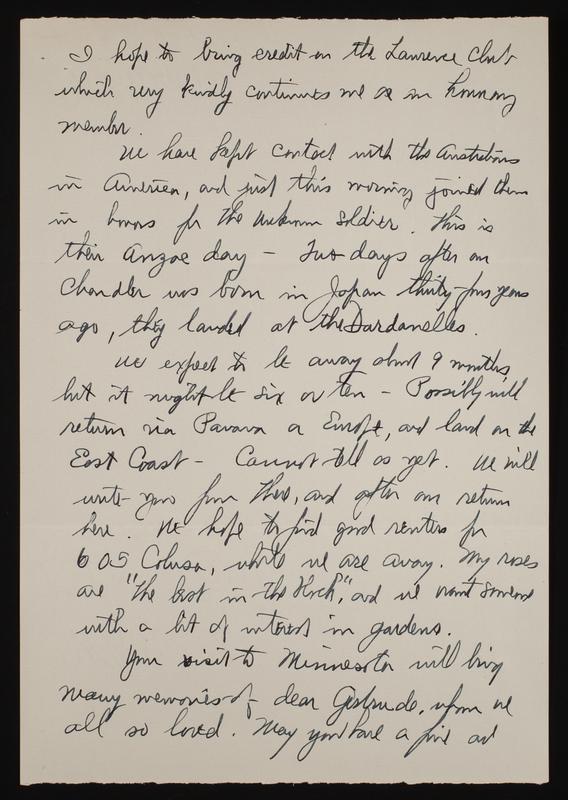 I hope to bring credit on the Lawrence Club
which very kindly continues me as an honorary
member.
We have kept contact with the Australians
in America, and just this morning joined them
in honors for the unknown soldier. This is
their Anzac day - Two days after our
Chandler was born in Japan thirty-four years
ago, they landed at the Dardanelles.
We expect to be away about 9 months,
but it might be six or ten - Possibly will
return via Panama or Europe, and land on the
East Coast - Cannot tell as yet. We will
write you from there, and after our return
here. We hope to find good renters for
605 Colusa, while we are away. My roses
are "the best in the Block", and we want someone
with a bit of interest in gardens.
Your visit to Minnesota will bring
many memories of dear Gertrude, whom we
all so loved. May you have a fine and